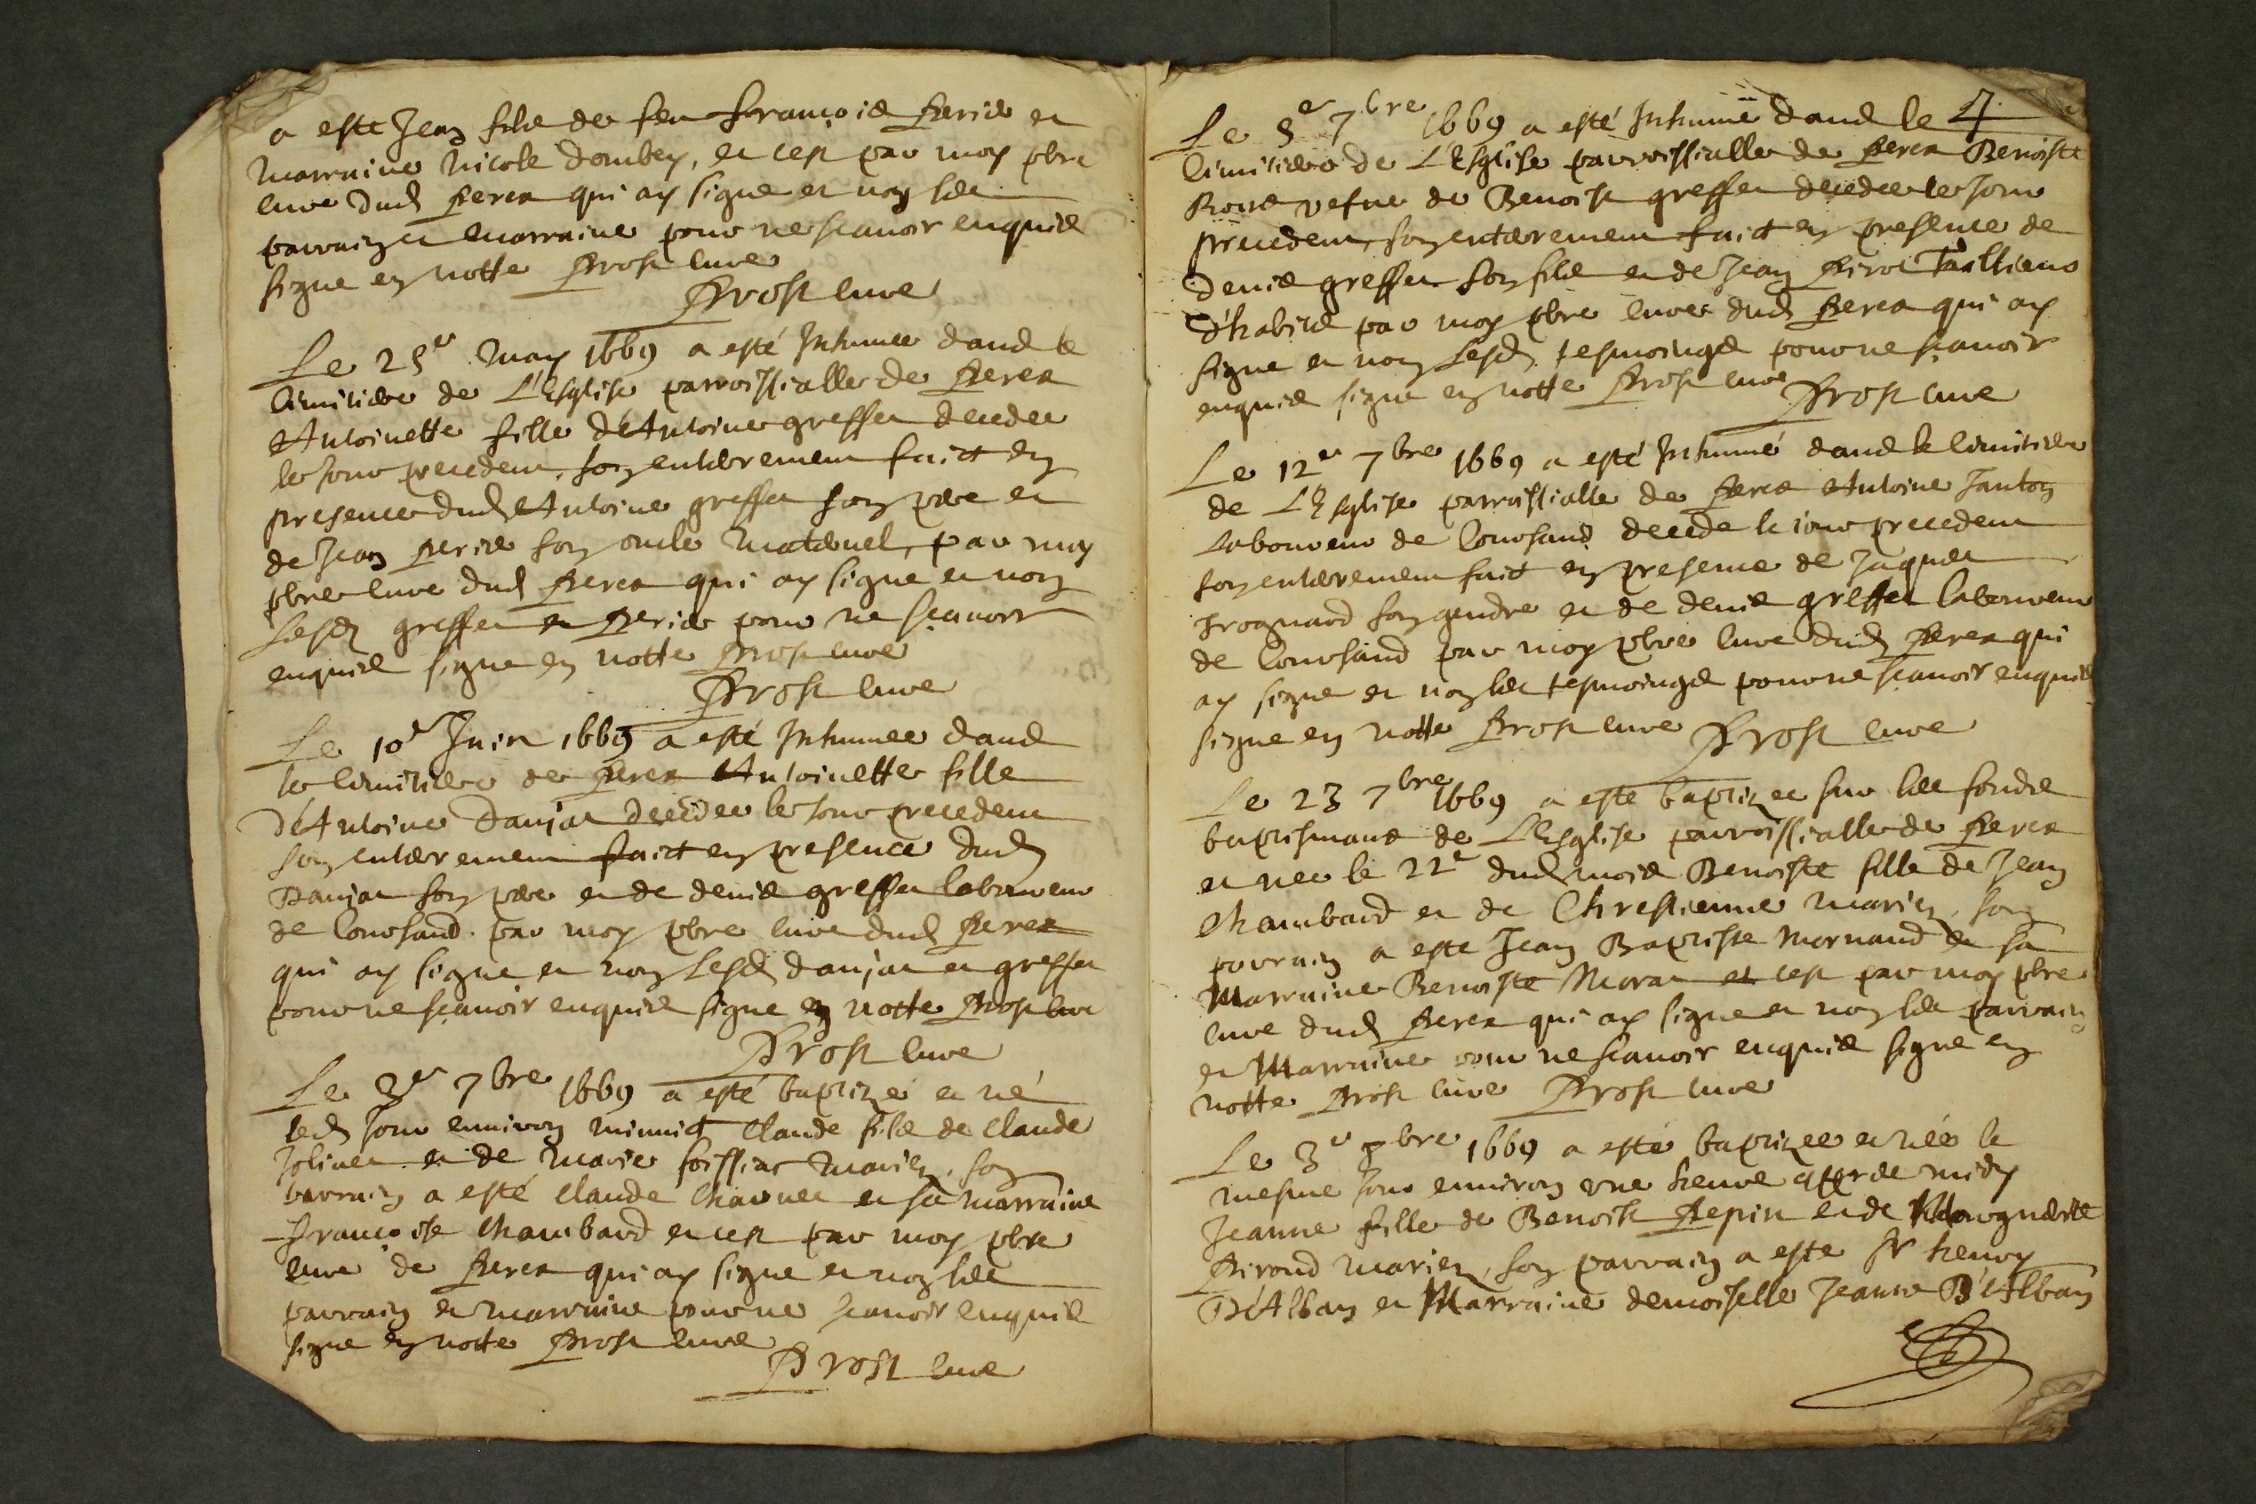 a esté Jean filz de feu François Peris et
marraine Nicole Dombey, et cest par moy pbre
cure dud Peres qui ay signe et non les
parrain et marraine pour ne scavoir enquis
signe en notte Prost cure
Prost cure
Le 25e May 1669 a esté Inhumee dans le
cimitiere de L'Esglise parroissialle de Peres
Antoinette fille d'Antoine greffet decedee
le jour precedent, son enterement faict en
presence dud Antoine greffet son pere et
de Jean Peris son oncle maternel, par moy
pbre cure dud Peres qui ay signe et non
lesd greffet et Peris pour ne scavoir
enquis signe en notte Prost cure
Prost cure
Le 10e Juin 1669 a esté Inhumee dans
le cimitiere de Peres Antoinette fille
d'Antoine Danjat decedee le jour precedent
son enterement faict en presence dud
Danjat son pere et de denis greffet laboureur
de Coursand par moy pbre cure dud Peres
qui ay signe et non lesd danjat et greffet
pour ne scavoir enquis signe en notte Prost cure
Prost cure
Le 2e 7bre 1669 a esté baptizé et né
led jour environ minuict Claude filz de Claude
Jolivet et de Marie foissiat mariez, son
parrain a esté Claude Charvet et sa marraine
Françoise Chambard et cest par moy pbre
cure de Peres qui ay signe et non les
parrain et marraine pour ne scavoir enquis
signe en notte Prost cure
Prost cure
Le 5e 7bre 1669 a esté Inhumé dans le 4
cimitiere de L'Esglise parroissialle de Peres Benoiste
vefve de Benoist greffet decedee le jour
precedent, son enterement faict en presence de
denis greffet son filz et de Jean Pirot Taillieur
d'habitz par moy pbre cure dud Peres qui ay
signe et non lesd tesmoings pour ne scavoir
enquis signe en notte Prost cure
Prost cure
Le 12e 7bre 1669 a esté Inhumé dans le cimitiere
de L'Esglise parroissialle de Peres Antoine Janton
laboureur de Coursand decedé le jour precedent
son enterement faict en presence de Jaques
frognard son gendre et de denis greffet laboureur
de Coursand par moy pbre cure dud Peres qui
ay signe et non les tesmoings pour ne scavoir enquis
signe en notte Prost cure Prost cure
Le 23 7bre 1669 a esté baptizee sur les fonds
baptismaux de L'Esglise parroissialle de Peres
et nee le 22e dud mois Benoiste fille de Jean
Chambard et de Chrestienne mariez, son
parrain a esté Jean Baptiste Mornand et sa
Marraine Benoiste Morat et cest par moy pbre
cure dud Peres qui ay signe et non les parrain
et Marraine pour ne scavoir enquis signe en
notte Prost cure Prost cure
Le 3e 8bre 1669 a esté baptizee et née le
mesme jour environ une heure apres midy
Jeanne fille de Benoist Pepin et de Marguerite
Pirond mariez, son parrain a esté Sr henry
D'Alban et Marraine demoiselle Jeanne D'Alban